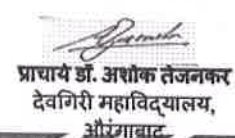 प्राचार्य डॉ. अशोक तेजनकर
देवगिरी महाविद्यालय,
औरंगाबाद